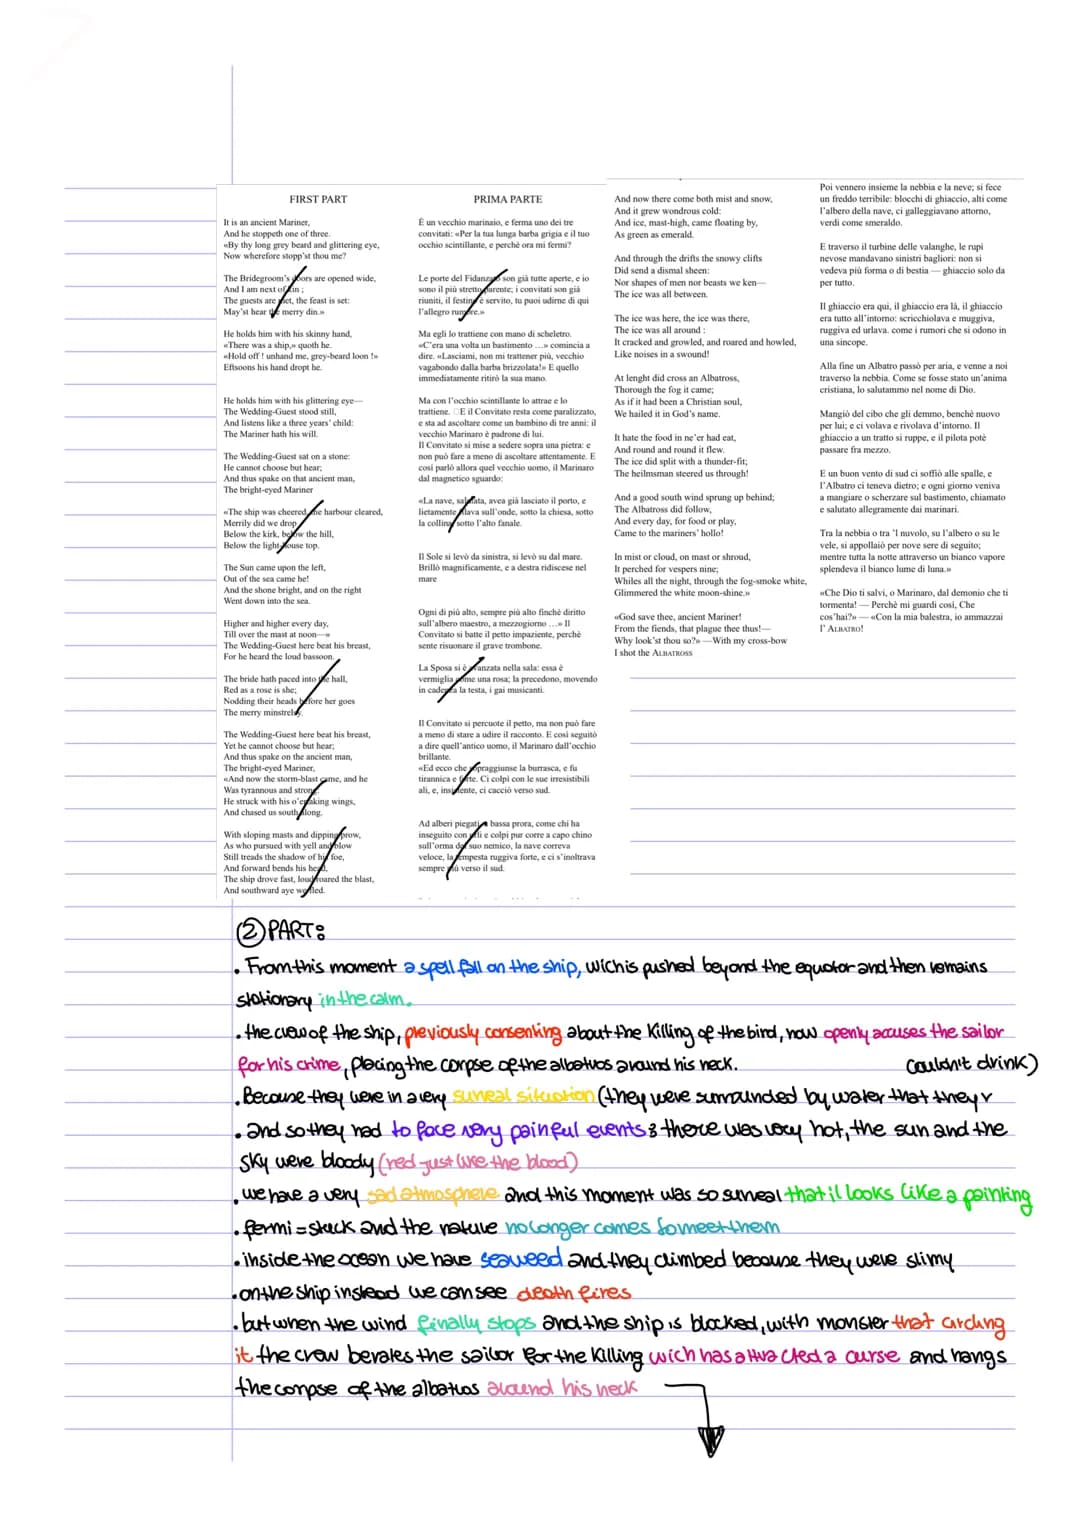 FIRST PART
It is an ancient Mariner,
And he stoppeth one of three.
«By thy long grey beard and glittering eye,
Now wherefore stopp'st thou me?
The Bridegroom's doors are opened wide,
And I am next of kin ;
The guests are met, the feast is set:
May'st hear the merry din.»
He holds him with his skinny hand,
«There was a ship,» quoth he.
«Hold off ! unhand me, grey-beard loon !»
Eftsoons his hand dropt he.
He holds him with his glittering eye—
The Wedding-Guest stood still,
And listens like a three years' child:
The Mariner hath his will.
The Wedding-Guest sat on a stone:
He cannot choose but hear;
And thus spake on that ancient man,
The bright-eyed Mariner
«The ship was cheered, the harbour cleared,
Merrily did we drop
Below the kirk, below the hill,
Below the light-house top.
The Sun came upon the left,
Out of the sea came he!
And the shone bright, and on the right
Went down into the sea.
Higher and higher every day,
Till over the mast at noon—»
The Wedding-Guest here beat his breast,
For he heard the loud bassoon.
The bride hath paced into the hall,
Red as a rose is she;
Nodding their heads before her goes
The merry minstrelsy.
The Wedding-Guest here beat his breast,
Yet he cannot choose but hear;
And thus spake on the ancient man,
The bright-eyed Mariner,
«And now the storm-blast came, and he
Was tyrannous and strong:
He struck with his o'ertaking wings,
And chased us south along.
With sloping masts and dipping prow,
As who pursued with yell and blow
Still treads the shadow of his foe,
And forward bends his head,
The ship drove fast, loud roared the blast,
And southward aye we fled.
PRIMA PARTE
È un vecchio marinaio, e ferma uno dei tre
convitati: «Per la tua lunga barba grigia e il tuo
occhio scintillante, e perchè ora mi fermi?
Le porte del Fidanzato son già tutte aperte, e io
sono il più stretto parente; i convitati son già
riuniti, il festino è servito, tu puoi udirne di qui
l'allegro rumore.»
Ma egli lo trattiene con mano di scheletro.
«C'era una volta un bastimento ...» comincia a
dire. «Lasciami, non mi trattener più, vecchio
vagabondo dalla barba brizzolata!» E quello
immediatamente ritirò la sua mano.
Ma con l'occhio scintillante lo attrae e lo
trattiene. E il Convitato resta come paralizzato,
e sta ad ascoltare come un bambino di tre anni: il
vecchio Marinaro è padrone di lui.
Il Convitato si mise a sedere sopra una pietra: e
non può fare a meno di ascoltare attentamente. E
così parlò allora quel vecchio uomo, il Marinaro
dal magnetico sguardo:
«La nave, salutata, avea già lasciato il porto, e
lietamente filava sull'onde, sotto la chiesa, sotto
la collina, sotto l'alto fanale.
Il Sole si levò da sinistra, si levò su dal mare.
Brillò magnificamente, e a destra ridiscese nel
mare
Ogni di più alto, sempre più alto finchè diritto
sull'albero maestro, a mezzogiorno ...» Il
Convitato si batte il petto impaziente, perchè
sente risuonare il grave trombone.
La Sposa si è avanzata nella sala: essa è
vermiglia come una rosa; la precedono, movendo
in cadenza la testa, i gai musicanti.
Il Convitato si percuote il petto, ma non può fare
a meno di stare a udire il racconto. E così seguitò
a dire quell'antico uomo, il Marinaro dall'occhio
brillante.
«Ed ecco che sopraggiunse la burrasca, e fu
tirannica e forte. Ci colpì con le sue irresistibili
ali, e, insistente, ci cacciò verso sud.
Ad alberi piegati, a bassa prora, come chi ha
inseguito con urli e colpi pur corre a capo chino
sull'orma del suo nemico, la nave correva
veloce, la tempesta ruggiva forte, e ci s'inoltrava
sempre più verso il sud.
And now there come both mist and snow,
And it grew wondrous cold:
And ice, mast-high, came floating by,
As green as emerald.
And through the drifts the snowy clifts
Did send a dismal sheen:
Nor shapes of men nor beasts we ken—
The ice was all between.
The ice was here, the ice was there,
The ice was all around :
It cracked and growled, and roared and howled,
Like noises in a swound!
At lenght did cross an Albatross,
Thorough the fog it came;
As if it had been a Christian soul,
We hailed it in God's name.
It hate the food in ne'er had eat,
And round and round it flew.
The ice did split with a thunder-fit;
The heilmsman steered us through!
And a good south wind sprung up behind;
The Albatross did follow,
And every day, for food or play,
Came to the mariners' hollo!
In mist or cloud, on mast or shroud,
It perched for vespers nine;
Whiles all the night, through the fog-smoke white,
Glimmered the white moon-shine.»
«God save thee, ancient Mariner!
From the fiends, that plague thee thus!—
Why look'st thou so?» —With my cross-bow
I shot the ALBATROSS
Poi vennero insieme la nebbia e la neve; si fece
un freddo terribile: blocchi di ghiaccio, alti come
l'albero della nave, ci galleggiavano attorno,
verdi come smeraldo.
E traverso il turbine delle valanghe, le rupi
nevose mandavano sinistri bagliori: non si
vedeva più forma o di bestia — ghiaccio solo da
per tutto.
Il ghiaccio era qui, il ghiaccio era là, il ghiaccio
era tutto all'intorno: scricchiolava e muggiva,
ruggiva ed urlava. come i rumori che si odono in
una sincope.
Alla fine un Albatro passò per aria, e venne a noi
traverso la nebbia. Come se fosse stato un'anima
cristiana, lo salutammo nel nome di Dio.
Mangiò del cibo che gli demmo, benchè nuovo
per lui; e ci volava e rivolava d'intorno. Il
ghiaccio a un tratto si ruppe, e il pilota potè
passare fra mezzo.
E un buon vento di sud ci soffiò alle spalle, e
l'Albatro ci teneva dietro; e ogni giorno veniva
a mangiare o scherzare sul bastimento, chiamato
e salutato allegramente dai marinari.
Tra la nebbia o tra 'l nuvolo, su l'albero o su le
vele, si appollaiò per nove sere di seguito;
mentre tutta la notte attraverso un bianco vapore
splendeva il bianco lume di luna.»
«Che Dio ti salvi, o Marinaro, dal demonio che ti
tormenta! — Perchè mi guardi così, Che
cos'hai?» — «Con la mia balestra, io ammazzai
l' ALBATRO!
② PART:
. From this moment a spell fall on the ship, wich is pushed beyond the equator and then remains
stationary in the calm.
. the crew of the ship, previously consenting about the Killing of the bird, now openly accuses the sailor
for his crime, placing the corpse of the albatros around his neck.
couldn't drink)
. Because they were in a very surreal situation (they were surrounded by water that they
. and so they had to face very painful events: there was very hot, the sun and the
sky were bloody (red just like the blood)
. we have a very sad atmosphere and this moment was so surreal that il looks like a painting
. fermi = stuck and the nature no longer comes to meet them
. inside the ocean we have seaweed and they climbed because they were slimy
. on the ship instead we can see death fires
. but when the wind finally stops and the ship is blocked, with monster that circling
it the crew berates the sailor for the Killing wich has attracted a curse and hangs
the corpse of the albatros around his neck